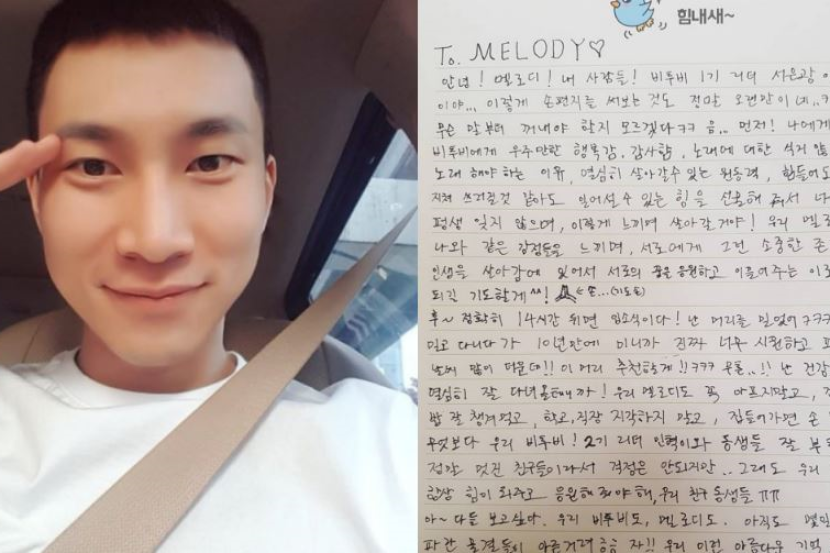 힘내새~
To. MELODY♡
안녕! 멜로디! 내 사람들! 비투비 1기 리더 서은광
이야... 이렇게 손편지를 써보는 것도 정말 오랜만이네..
무슨 말부터 꺼내야 할지 모르겠다ㅋㅋ 음.. 먼저! 나에게
비투비에게 우주만한 행복감, 감사함, 노래에 대한
노래 해야하는 이유, 열심히 살아갈수 있는 원동력, 힘들어도
지쳐 쓰러질것 같아도 일어설수 있는 힘을 선물해 줘서
평생 잊지 않으며, 이렇게 느끼며 살아갈거야! 우리
나와 같은 감정들을 느끼며, 서로에게 그런 소중한 존
인생을 살아감에 있어서 서로의 꿈을 응원하고 이끌어주는
되길 기도할게 ^^! ←손...(기도손)
후~ 정확히 14시간 뒤면 입소식이다! 난 머리를 밀었어 ㅋㅋㅋ
밀고 다니다가 10년만에 미니까 진짜 너무 시원하고
날씨 많이 더운데!! 이 머리 추천할게!! ㅋㅋㅋ 난 건강
열심히 잘 다녀올테니까! 우리 멜로디도 꼭 아프지말고,
밥 잘 챙겨먹고, 학교,직장 지각하지 말고, 집들어가면 손
무엇보다 우리 비투비! 2기 리더 민혁이와 동생들 잘 부
정말 멋진 친구들이라서 걱정은 안되지만.. 그래도 우리
항상 힘이 되주고 응원해 줘야해, 우리 친구 동생들 ㅠㅠ
아~ 다들 보고싶다. 우리 비투비도, 멜로디도. 아직도
파란 물결들이 아른거려 자!! 우리 이런 아름다운 기억